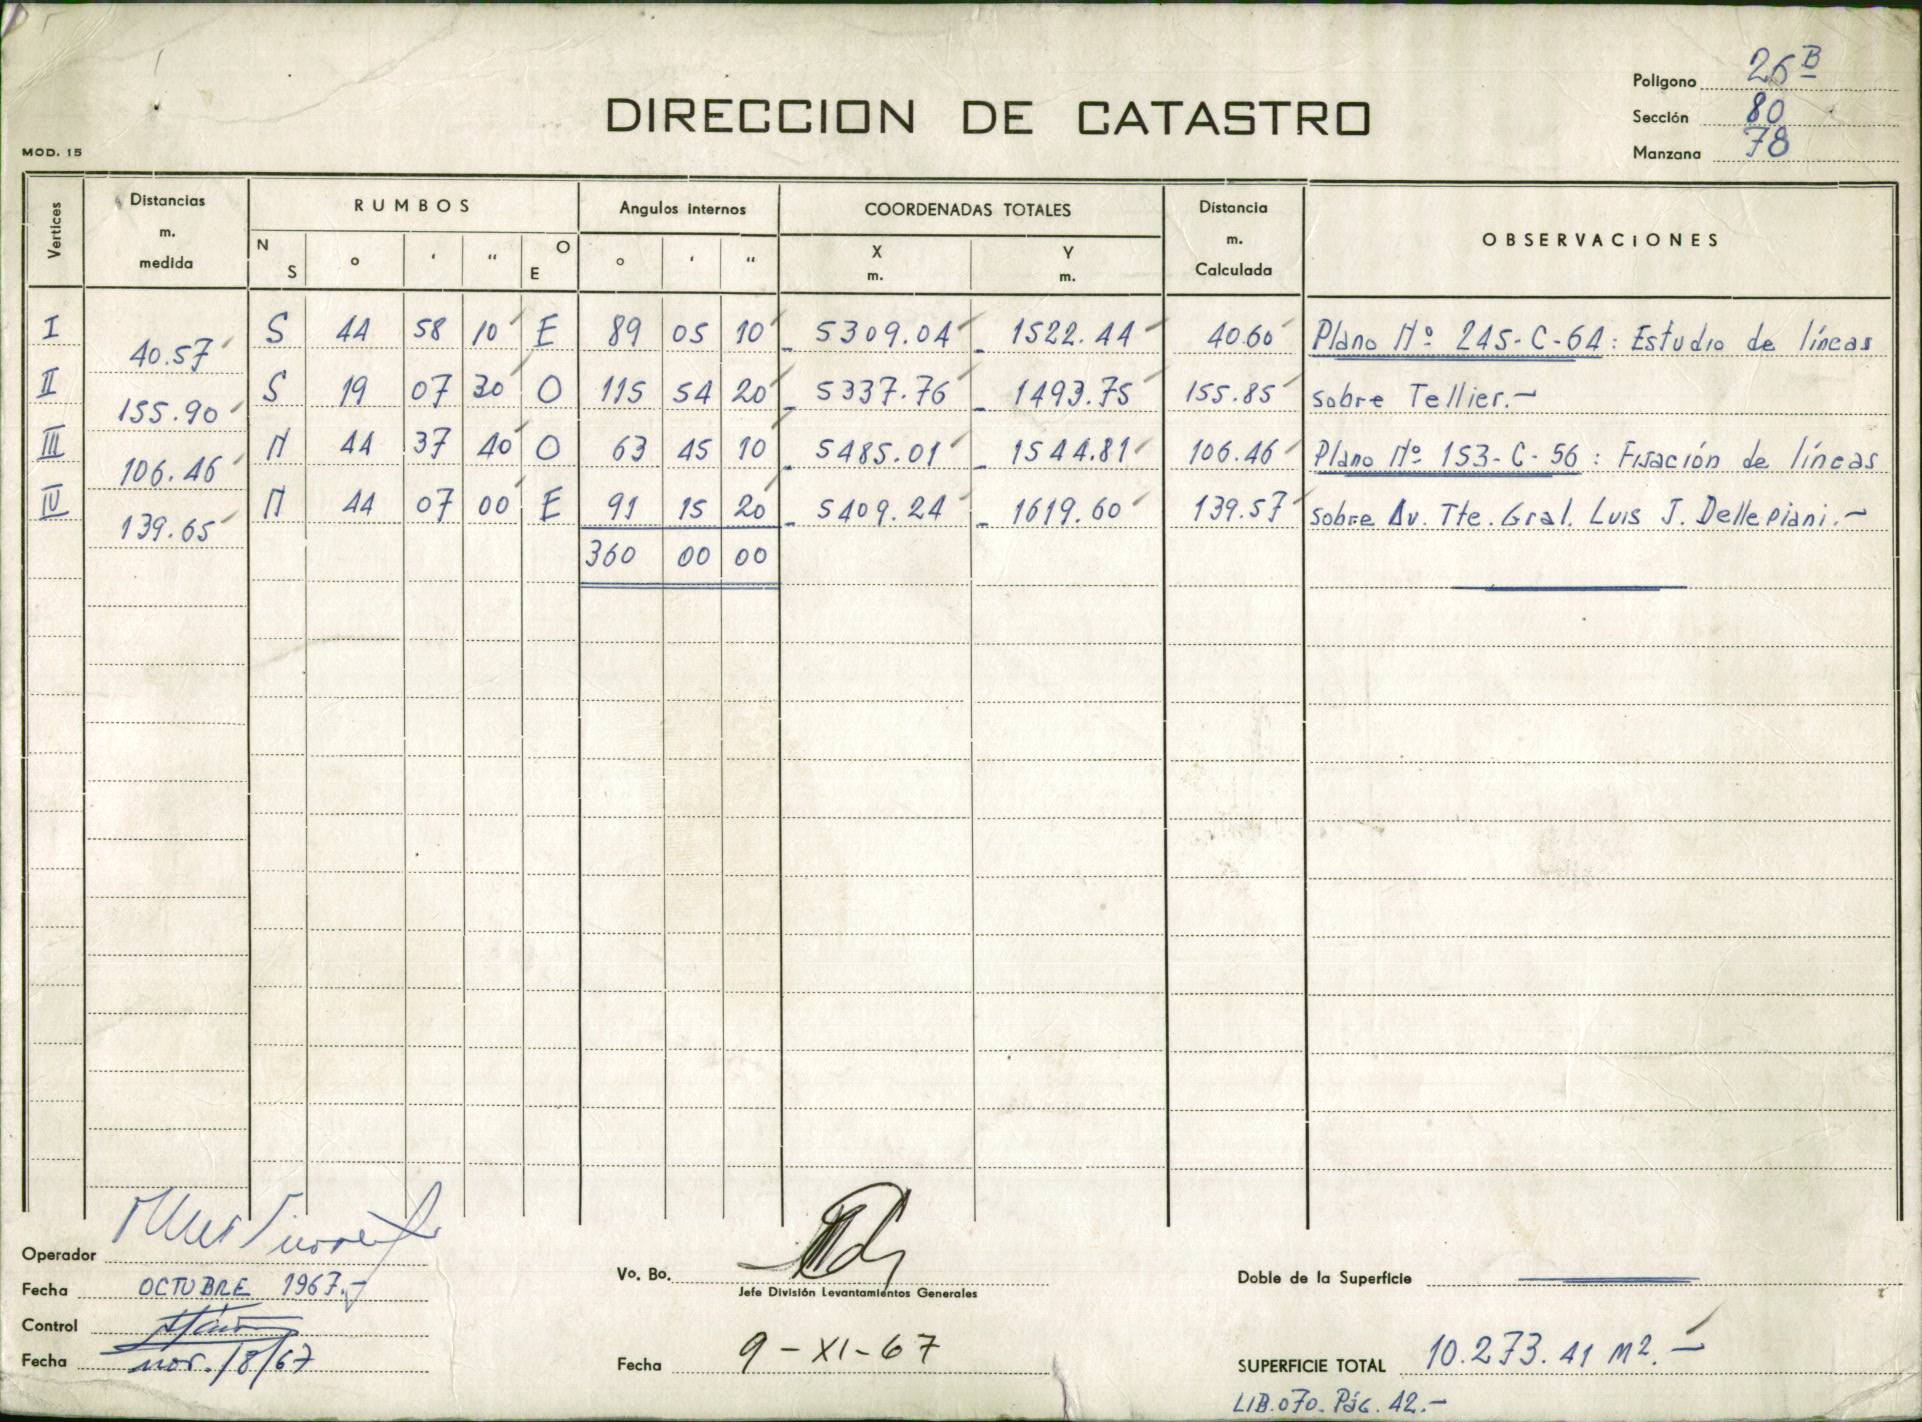 Poligono 26 B
DIRECCION DE CATASTRO
Sección 80
MOD. 15
Manzana 78
Vertices
Distancias m. medida
RUMBOS
Angulos internos
COORDENADAS TOTALES
Distancia m. Calculada
OBSERVACIONES
N S ° ' " O E
° ' "
X m.
Y m.
I S 44 58 10 E 89 05 10 - 5309.04 - 1522.44 40.60 Plano Nº 245-C-64: Estudio de líneas
40.57
II S 19 07 30 O 115 54 20 - 5337.76 - 1493.75 155.85 sobre Tellier.-
155.90
III N 44 37 40 O 63 45 10 - 5485.01 - 1544.81 106.46 Plano Nº 153-C-56: Fijación de líneas
106.46
IV N 44 07 00 E 91 15 20 - 5409.24 - 1619.60 139.57 sobre Av. Tte. Gral. Luis J. Dellepiani.-
139.65
360 00 00
Operador
Fecha OCTUBRE 1967.-
Control
Fecha nov./8/67
Vo. Bo.
Jefe División Levantamientos Generales
Fecha 9-XI-67
Doble de la Superficie
SUPERFICIE TOTAL 10.273.41 M2.-
LIB.070. Pág. 42.-